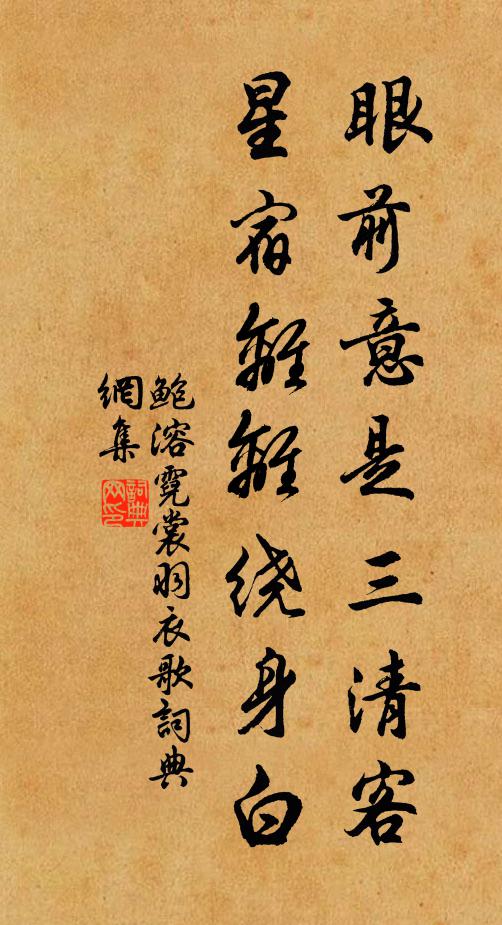 眼前意是三清客
星宿離離绕身白
鮑溶霓裳羽衣歌詞典
網集
詞典
网印